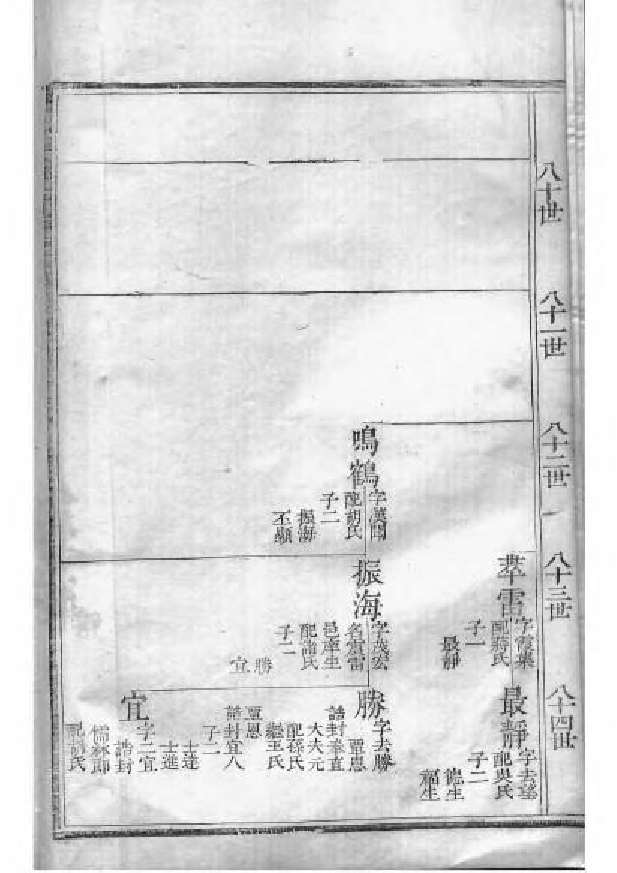 八十世
八十一世
八十二世
八十三世
八十四世
萃雷
字霞葉
配蔣氏
子一
最靜
最靜
字去
配吳氏
子二
德生
福生
鳴鶴
配胡氏
子二
振海
丕顯
振海
字茂宏
名震雷
邑庠生
配浦氏
子二
勝
宜
勝
字去勝
覃恩
誥封奉直
大夫元
配孫氏
繼王氏
覃恩
誥封宜人
子二
士達
士進
宜
字二宜
誥封
儒林郎
配許氏